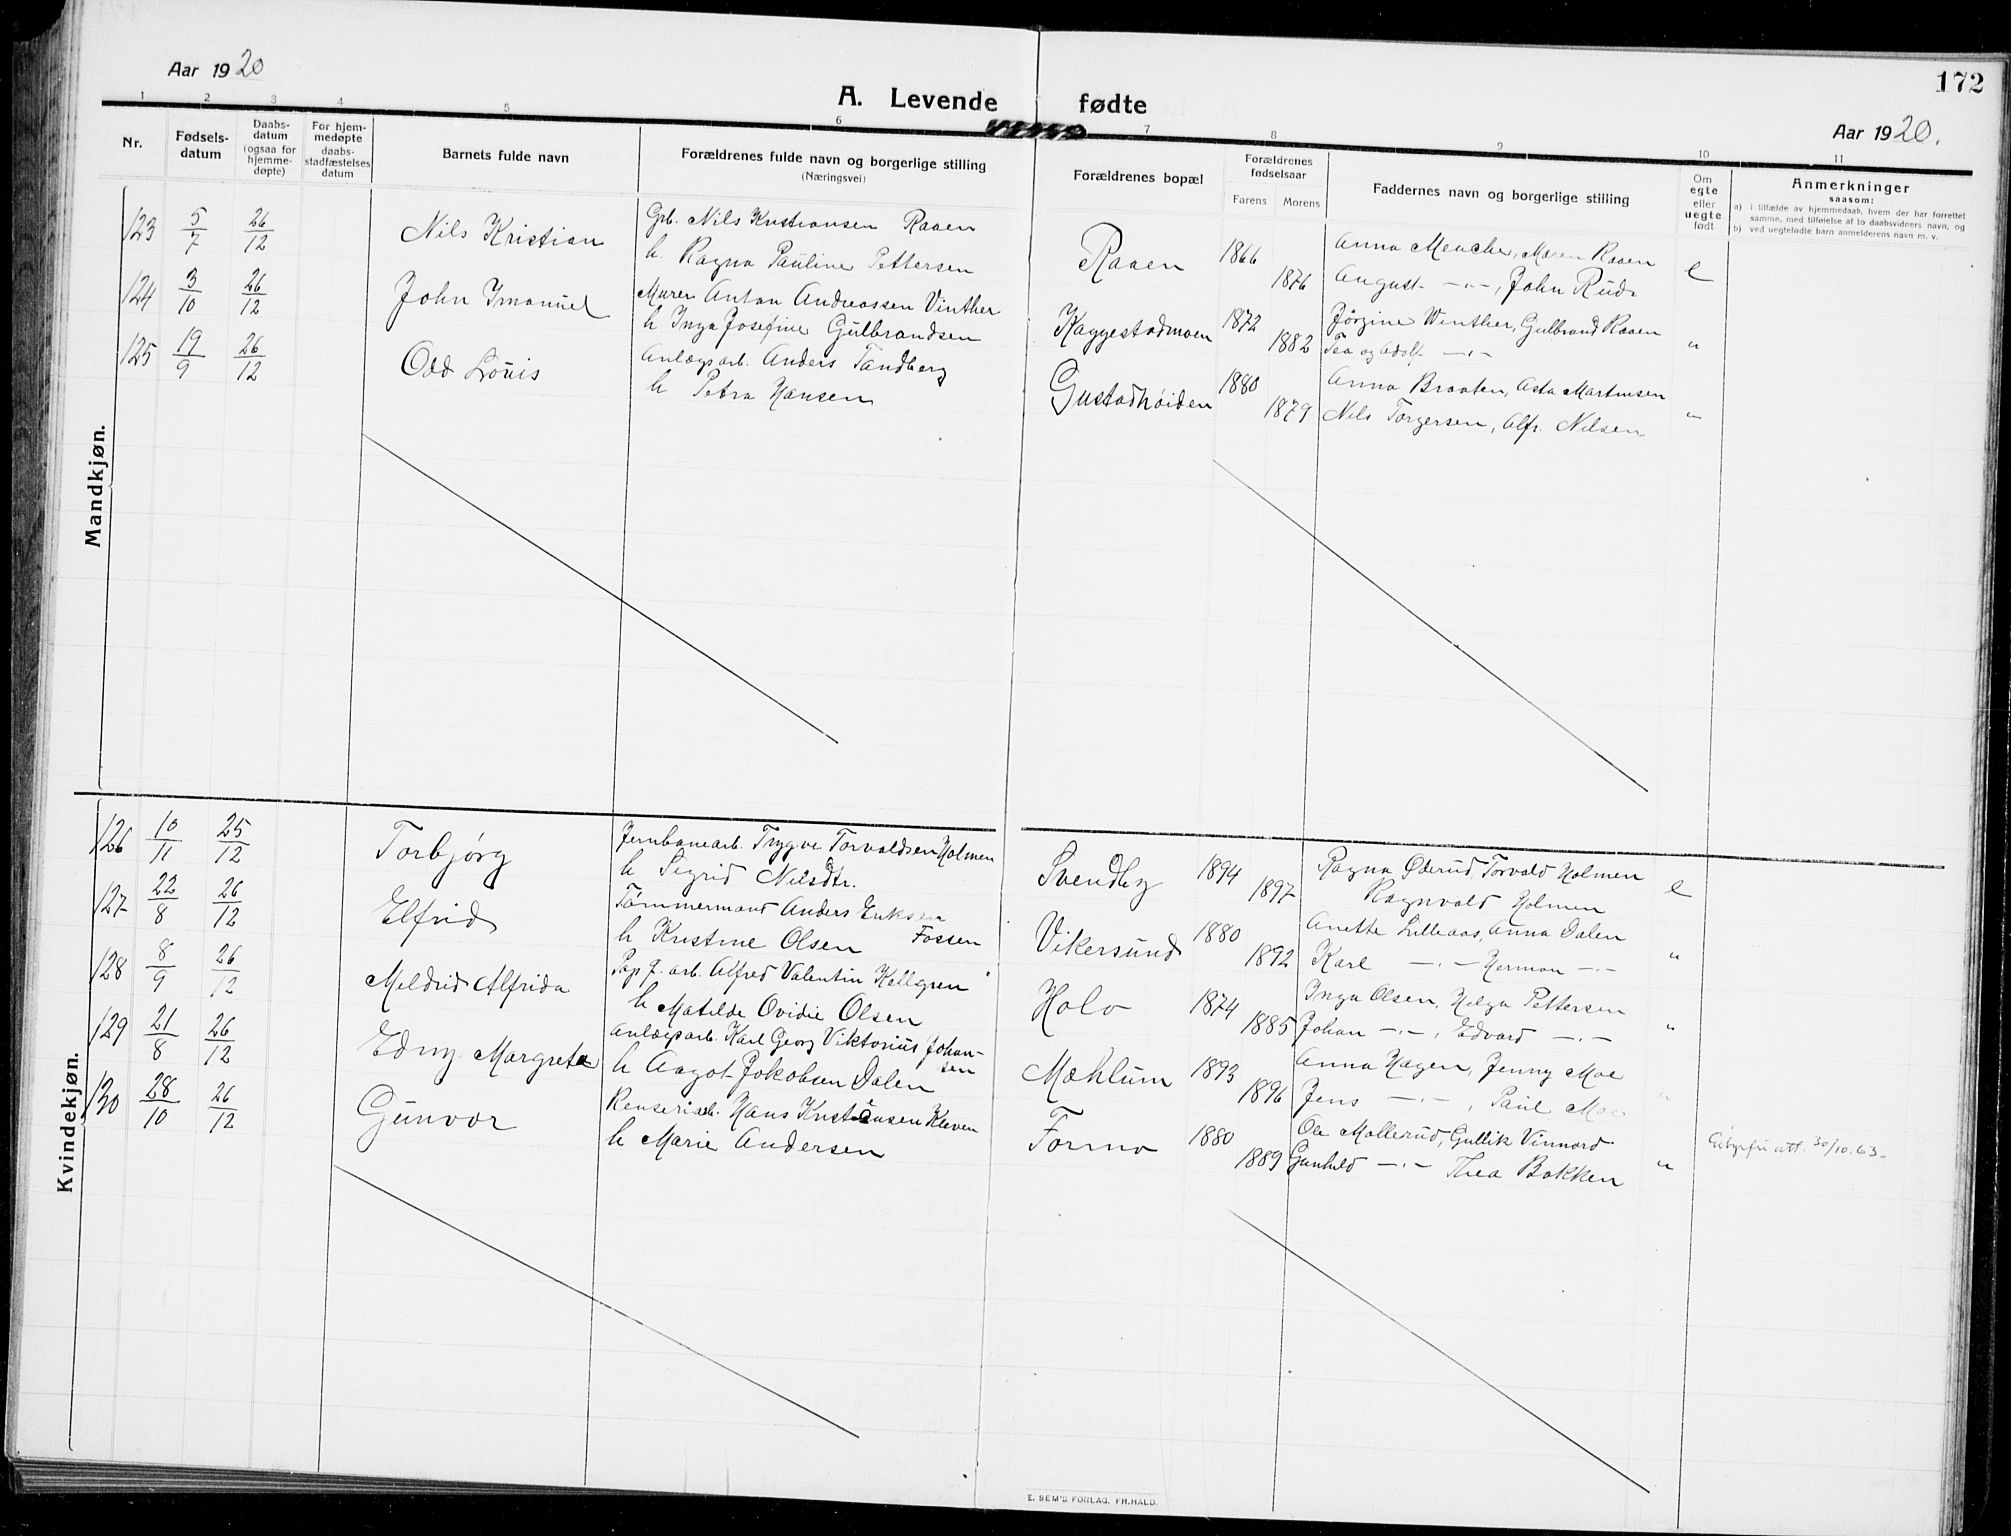 Aar 1920
172
A. Levende fødte
Aar 1920.
1 2 3 4 5 6 7 8 9 10 11
Nr.
Fødsels-
datum
Daabs-
datum
(ogsaa for
hjemme-
døpte)
For hjem-
medøpte
daabs-
stadfæstelses
datum
Barnets fulde navn
Forældrenes fulde navn og borgerlige stilling
(Næringsvei)
Forældrenes bopæl
Forældrenes
fødselsaar
Farens Morens
Faddernes navn og borgerlige stilling
Om
egte
eller
uegte
født
Anmerkninger
saasom:
a) i tilfælde av hjemmedaab, hvem der har forrettet
samme, med tilføielse af to daabsvidners navn, og
b) ved uegtefødte barn anmelderens navn m. v.
Mandkjøn.
123 5/7 26/12 Nils Kristian
Grb. Nils Kristiansen Raaen
h. Ragna Pauline Pettersen
Raaen 1866 1876
Anna , Maren Raaen
August -"-, John Rud
e
124 3/10 26/12 John Imanuel
Murer Anton Andreassen Vinther
h Inga Josefine Gulbrandsen
Kaggestadmoen 1872 1882
Jörgine Winther, Gulbrand Raaen
Tea og Adolf -"-
"
125 19/9 26/12 Odd Louis
Anlægsarb. Anders Tandberg
h Petra Hansen
Gustadhøiden 1880 1879
Anna Braaten, Asta Martinsen
Nils Torgersen, Alfr. Nilsen
"
Kvindekjøn.
126 10/11 25/12 Torbjørg
Jernbanearb. Trygve Torvaldsen Holmen
h Sigrid Nilsdtr.
Svendby 1894 1897
Ragna Øderud, Torvald Holmen
Ragnvald Holmen
e
127 22/8 26/12 Elfrid
Tømmermand Anders Eriksen
Fossen
h Kristine Olsen
Vikersund 1880 1892
Anette Lilleaas, Anna Dalen
Karl -"- Herman -"-
"
128 8/9 26/12 Meldrid Alfrida
Pap.f. arb. Alfred Valentin Kellgren
h Matilde Ovidie Olsen
Holo 1874 1885
Inga Olsen, Helga Pettersen
Johan -"-, Edvard -"-
"
129 21/8 26/12 Edny Margrete
Anlægsarb. Karl Georg Viktorius Johan-
sen
h Aagot Jakobsen Dalen
Mæhlum 1893 1896
Anna Hagen, Jenny Moe
Jens -"-, Paul Moe
"
130 28/10 26/12 Gunvor
Renseriarb. Hans Kristiansen Kleven
h Marie Andersen
Formo 1880 1889
Ole Mollerud, Gullik Vinnord
Gunhild -"- Thea Bakken
"
30/10.63.
E. SEM'S FORLAG, FR.HALD.